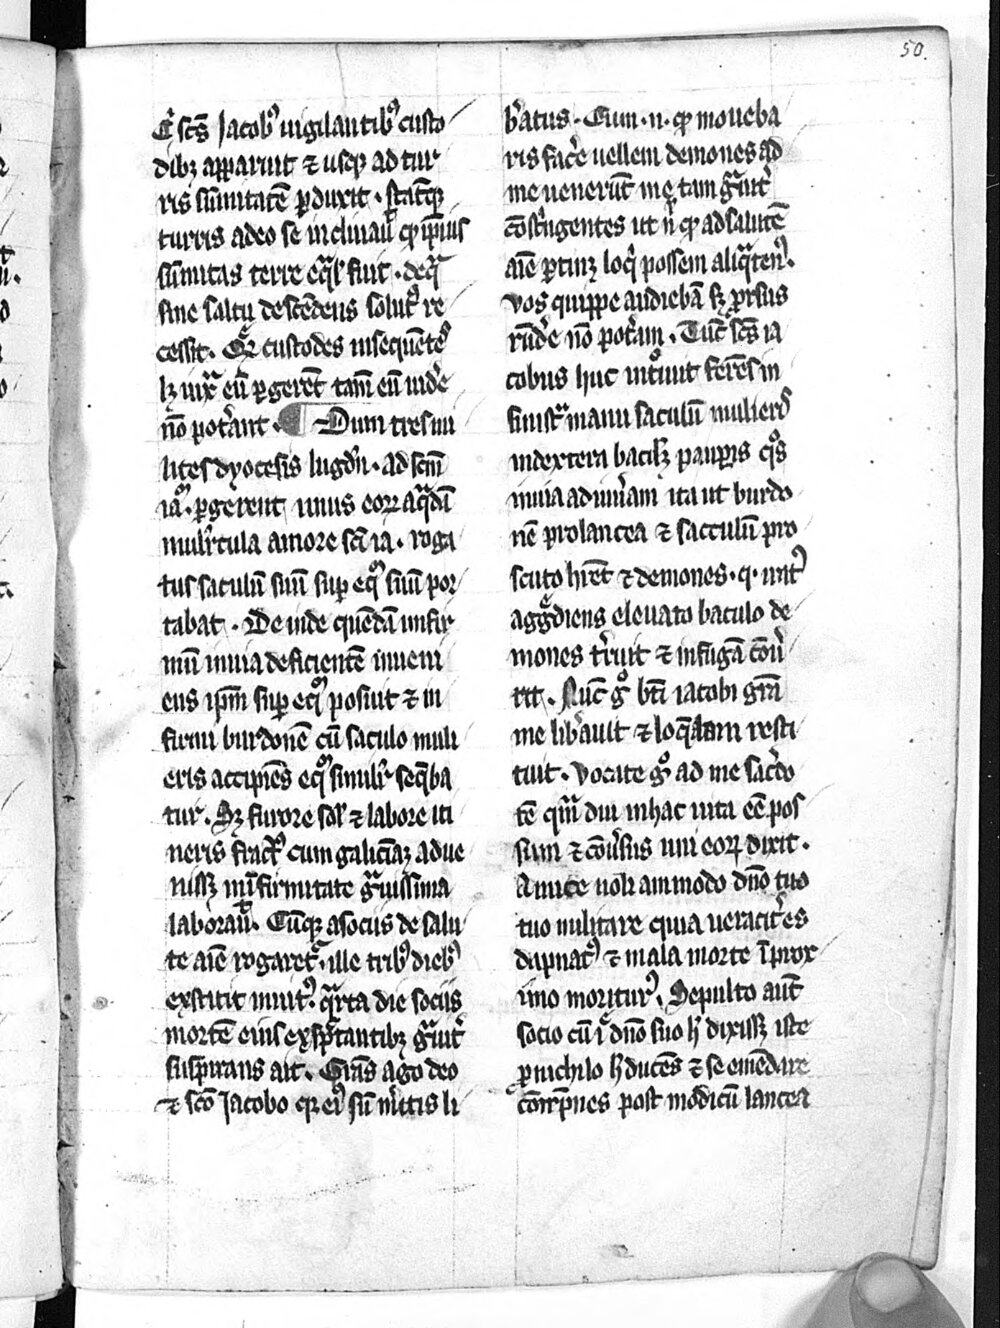 50.
E scs Jacobꝰ uigilantibꝰ custo
dibꝫ apparuit ⁊ usqꝫ ad tur
ris sūmitatē ꝑduxit · statīqꝫ
turris adeo se inclinauit qd ipsius
sūmitas terre eqͣl' fuit · de qͣ
sine saltu descēdens solutꝰ re
cessit · Qͣ custodes insequētes
lꝫ iuxͣ eū ꝑgerēt tam̄ eū uidē
nō poterant · Dum tres mi
lites dyocesis lugdn̄ · ad scm̄
ia · ꝑgerent unus eoꝝ a qͣdā
muliercula amore sc̄i ia · roga
tus saculū suū suꝑ equū suū por
tabat · De inde quēdā infir
mū in uia deficientē inueni
ens ip̄m suꝑ equū posuit ⁊ in
firmi burdonē cū saculo muli
eris accipiēs equū simulr̄ seq̄ba
tur · Sꝫ furore sol' ⁊ labore iti
neris fractꝰ cum galiciaꝫ adue
nissꝫ infirmitate gͣuissima
laborauit · Cūqꝫ a sociis de salu
te aīe rogaretͬ · ille tribꝰ diebꝰ
exstitit mutꝰ · qͣrta die sociis
mortē eius exspectantibꝫ gͣuit̄
suspirans ait · Grās ago deo
⁊ sco Jacobo qꝛ eiꝰ sū meritis li
b̄atus · Cum · n · qd moueba
ris facē uellem demones ad
me uenerūt me tam gͣuit̄
cōstⁱngentes ut n̄ qd ad salutē
aīe ꝑtinꝫ loqⁱ possem aliqͣtenꝰ ·
Vos quippe audiebā sꝫ prorsus
rn̄dē nō poteram · Tūc scs ia
cobus huc intrauit ferēs in
sinistͣ manu saculū mulieris
in dextera baculū pauꝑis qͦs
in uia adiuuāam ita ut burdo
nē pro lancea ⁊ sacculū pro
scuto hr̄et ⁊ demones · q · irat'
aggͣdiens eleuato baculo de
mones t̄ruit ⁊ in fugā cōū
tit · Nūc gͦ bt̄i iacobi grā
me lib̄auit ⁊ loq̄lam resti
tuit · Vocate gͦ ad me sac̄do
tē qm̄ diu in hac uita eē pos
sum ⁊ cōu̇sus uni eoꝝ dixit ·
Amice noli ammodo dn̄o tuo
tuo militare quia ueracit̄ es
dāpnatꝰ ⁊ mala morte ī prox
imo moriturꝰ · Sepulto aūt
socio cū ī dn̄o suo h̄ dixissꝫ iste
ꝓ nichilo h̄ ducēs ⁊ se emēdare
cōtēpnes post modicū lancea